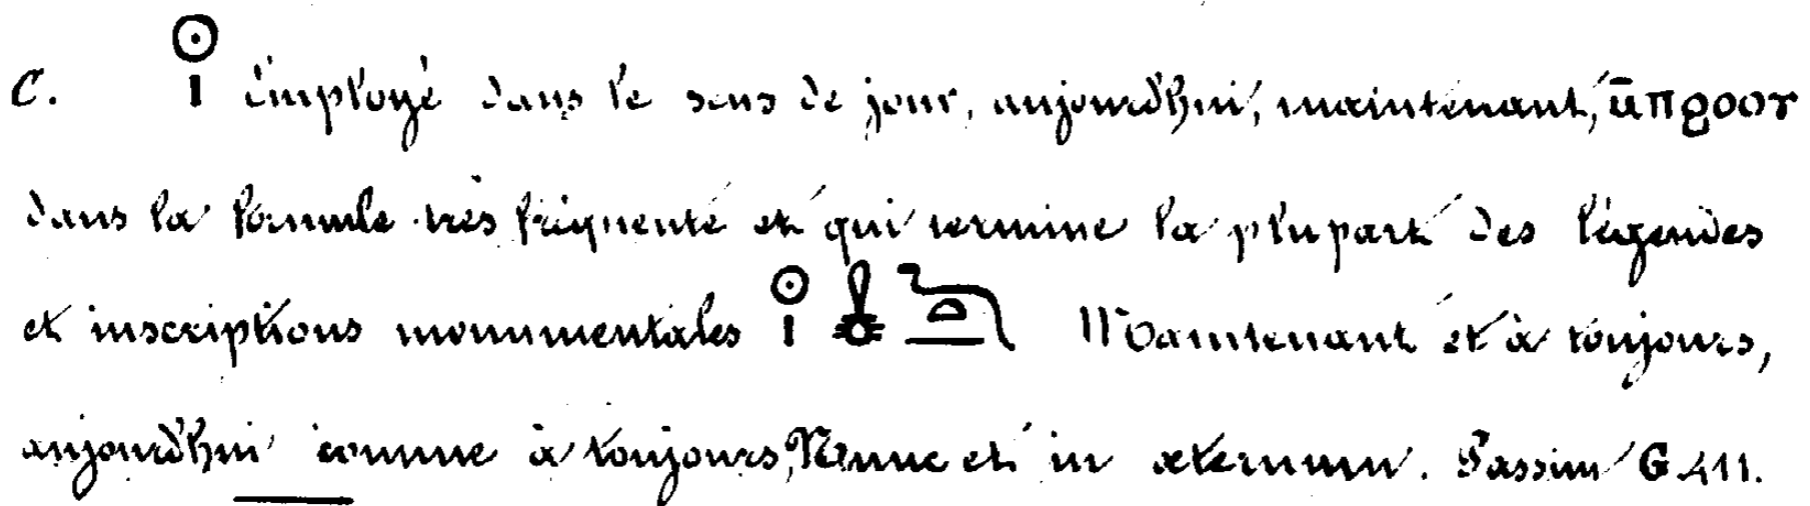 C. 𓇳𓏤 Employé dans le sens de jour, aujourd'hui, maintenant, ⲙ̄ⲡϩⲟⲟⲩ
dans la formule très fréquente et qui termine la plupart des légendes
et inscriptions monumentales 𓇳𓏤 𓎛 𓆓𓏏𓇾 Maintenant et à toujours,
aujourd'hui comme à toujours, Nunc et in æternum. Passim G 411.